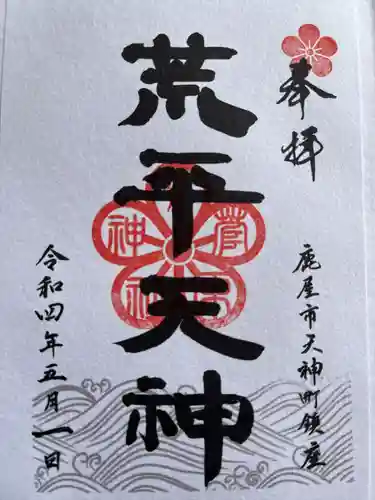 奉拝
鹿屋市天神町鎮座
荒平天神
令和四年五月一日